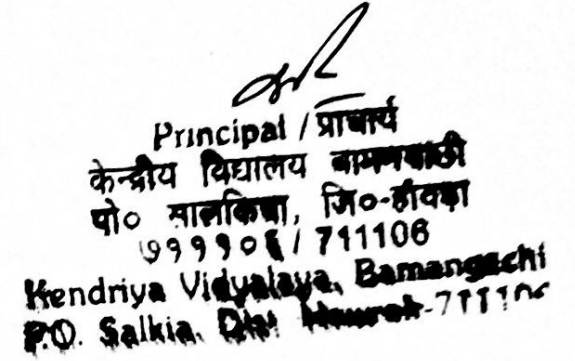 Principal / प्राचार्य
केन्द्रीय विद्यालय बामनगाछी
पो० सालकिया, जि०-हावड़ा
७११１०६ / 711106
Kendriya Vidyalaya, Bamangachi
P.O. Salkia, Dist Howrah-711106